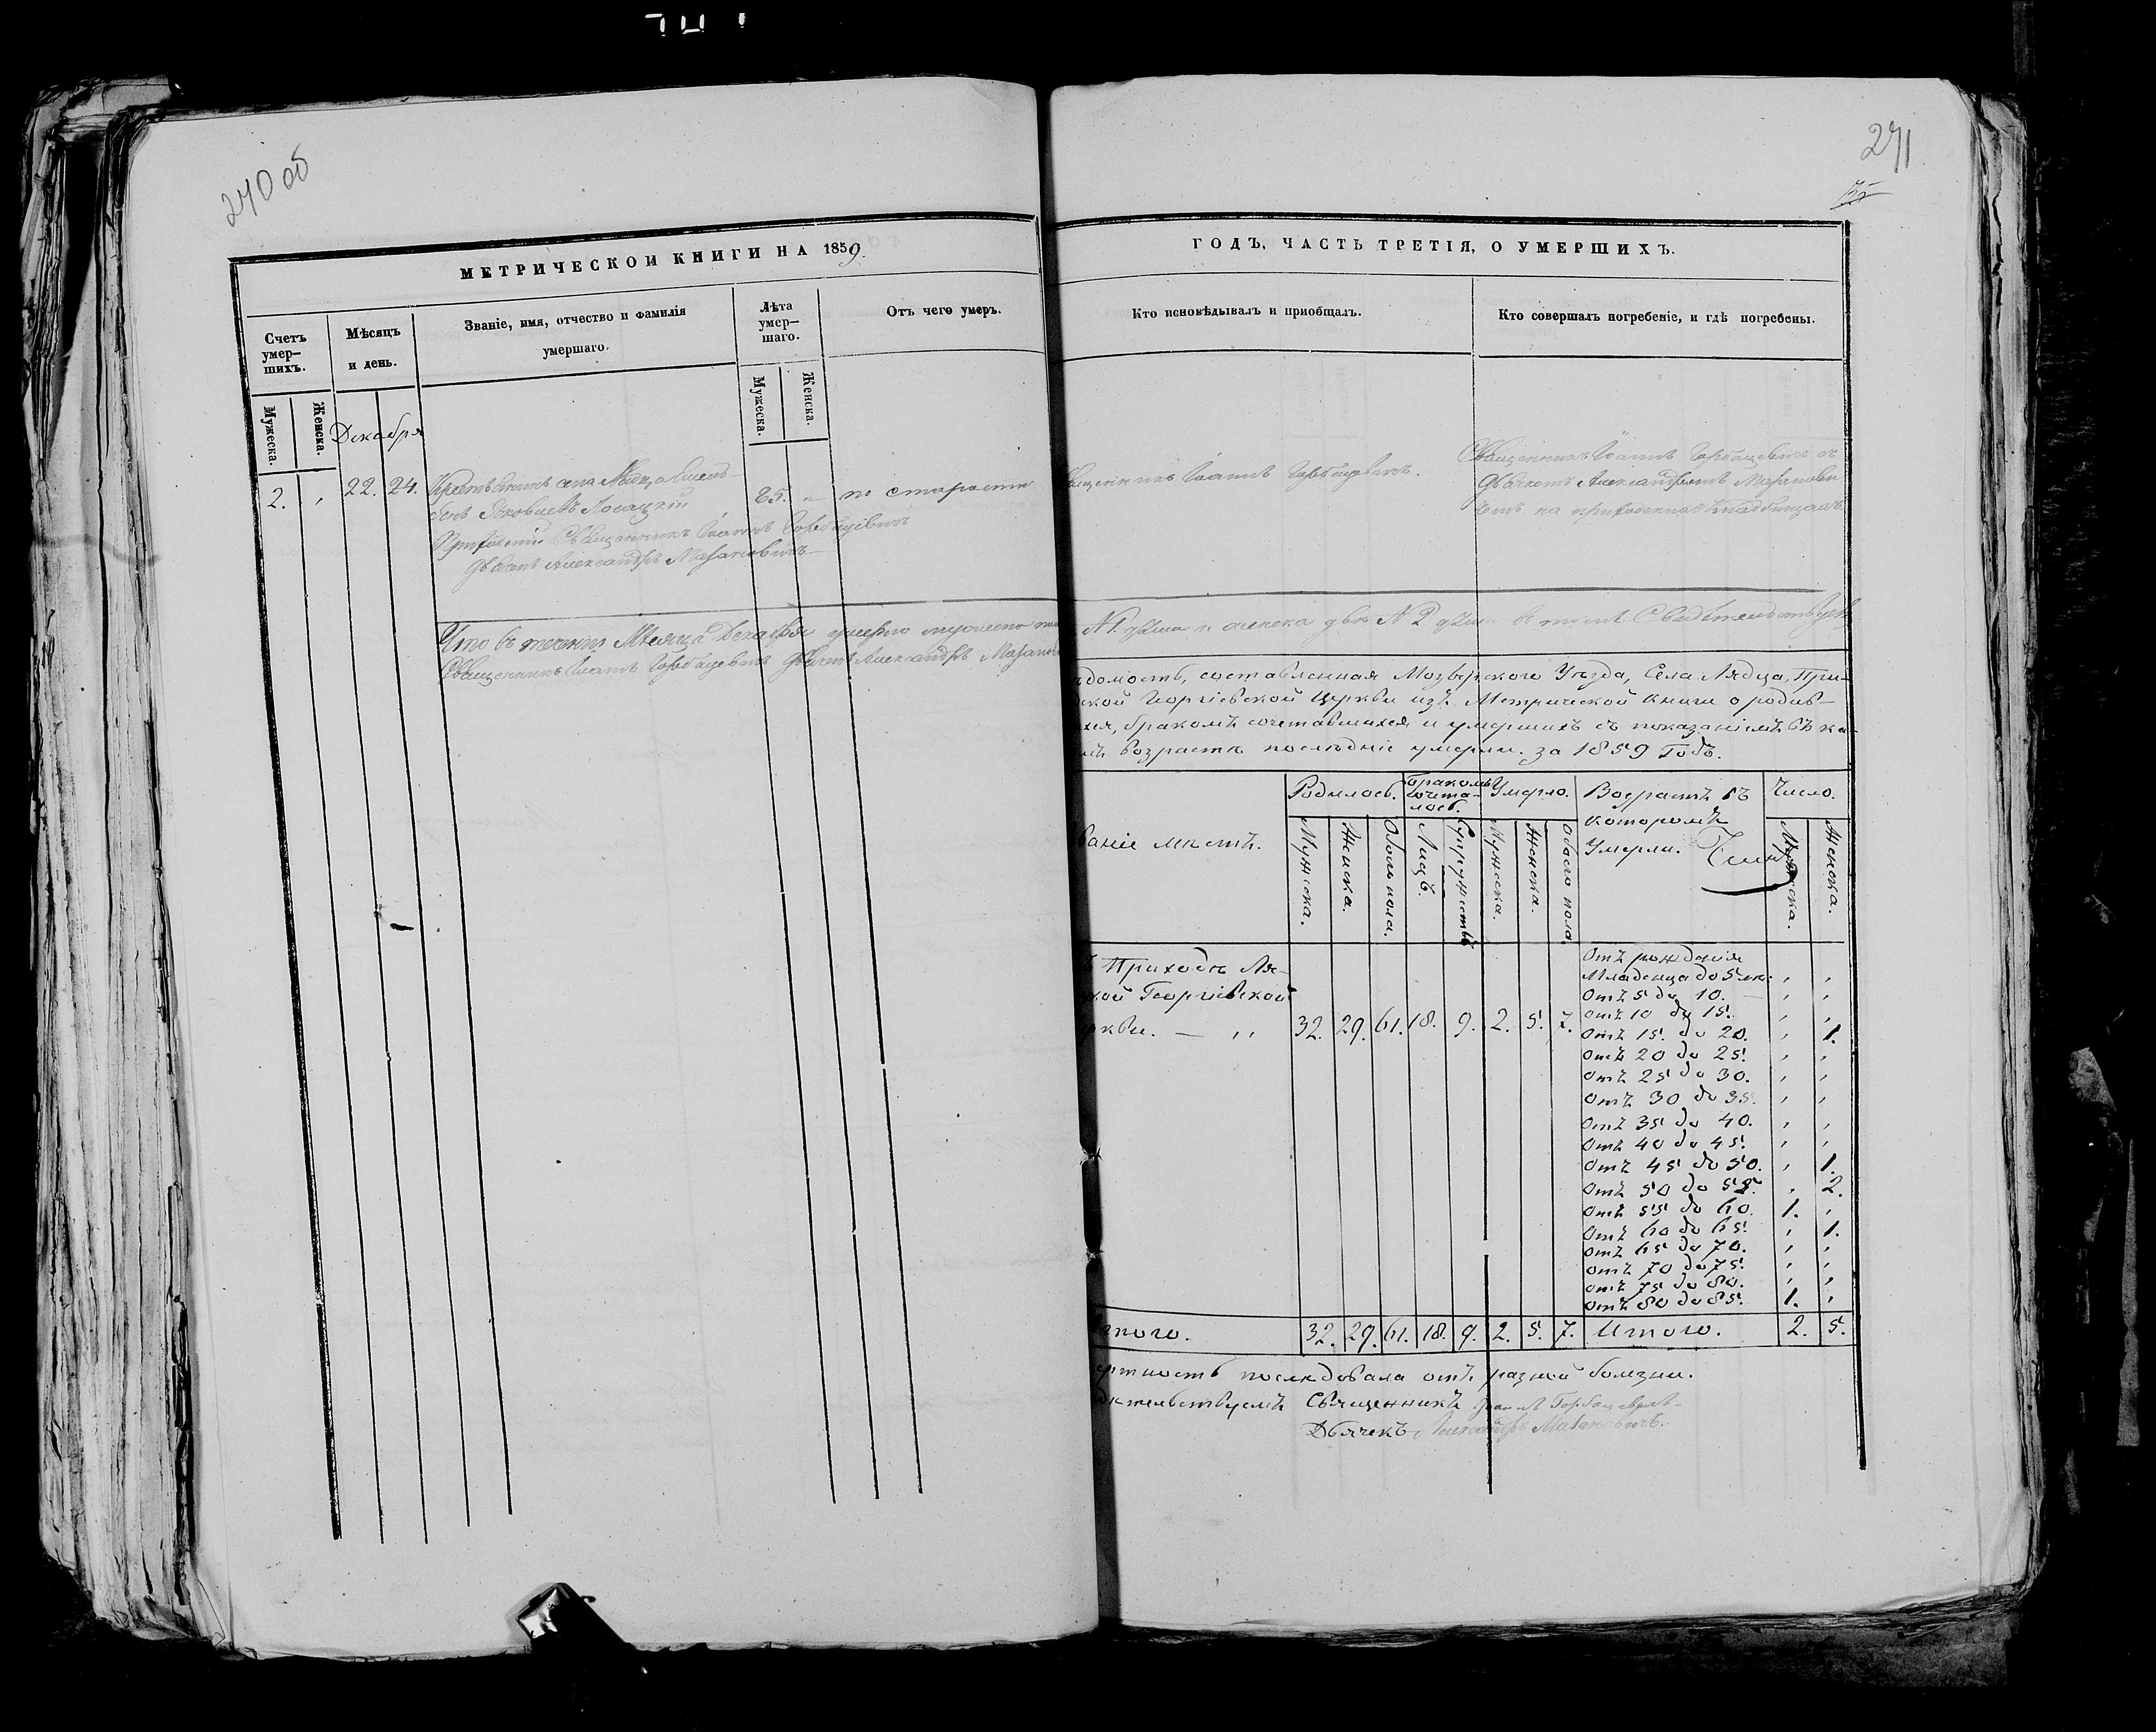 240 об
241
МЕТРИЧЕСКОЙ КНИГИ НА 1859.
ГОДЪ, ЧАСТЬ ТРЕТІЯ, О УМЕРШИХЪ.
Счетъ умер-
шихъ.
Мѣсяцъ
и день.
Званіе, имя, отчество и фамилія
умершаго.
Лѣта
умер-
шаго.
Отъ чего умеръ.
Кто исповѣдывалъ и приобщалъ.
Кто совершалъ погребеніе, и гдѣ погребены.
Мужеска.
Женска.
Мужеска.
Женска.
Декабря
2.
22. 24.
Крестьянинъ села Лядца
Яковлевъ
85.
по старости
Священникъ Іоаннъ Горбацевичъ
Дьячекъ Александръ Мазановичъ
Священникъ Іоаннъ Горбацевичъ.
Священникъ Іоаннъ Горбацевичъ съ
Дьячкомъ Александромъ Мазанови
чемъ на приходскихъ кладбищахъ
Что въ теченіи Мѣсяца Декабря умерло мужеска пола № 1 душа и женска двѣ № 2 души въ томъ Свидѣтельствуемъ
Священникъ Іоаннъ Горбацевичъ Дьячекъ Александръ Мазанови
ѣдомость, составленная Мозырского Уѣзда, Села Лядца, При-
ской Георгіевской Церкви изъ Метрической Книги о родив-
хся, бракомъ сочетавшихся и умершихъ съ показаніемъ въ ка-
мъ возрастѣ послѣдніе умерли. за 1859 Годъ.
ваніе мѣстъ.
Родилось.
Бракомъ
сочета-
лось.
Умерло.
Возрастъ въ
которомъ
Умерли.
Число.
Мужеска.
Женска.
Обоего пола.
Лицъ.
Супружествъ
Мужеска.
Женска.
Обоего пола.
Мужеска.
Женска.
ъ Приходѣ Ля-
кой Георгіевской
ркви. — ,, 32. 29. 61. 18. 9. 2. 5. 7.
Отъ рожденія
Младенца до 5 лѣ: , ,
Отъ 5 до 10. — , ,
Отъ 10 до 15. , ,
Отъ 15. до 20. , 1.
Отъ 20 до 25. , ,
Отъ 25 до 30. , ,
Отъ 30 до 35. , ,
Отъ 35 до 40. , ,
Отъ 40 до 45. , ,
Отъ 45 до 50. , 1.
Отъ 50 до 55. , 2.
Отъ 55 до 60. 1. ,
Отъ 60 до 65. , 1.
Отъ 65 до 70. , ,
Отъ 70 до 75. , ,
Отъ 75 до 80. , ,
Отъ 80 до 85. 1. ,
того. 32. 29. 61. 18. 9. 2. 5. 7. Итого. 2. 5.
ертность послѣдовала отъ разной болезни.
дѣтельствуемъ Священникъ Іоаннъ Горбацевичъ
Дьячекъ Александръ Мазановичъ.